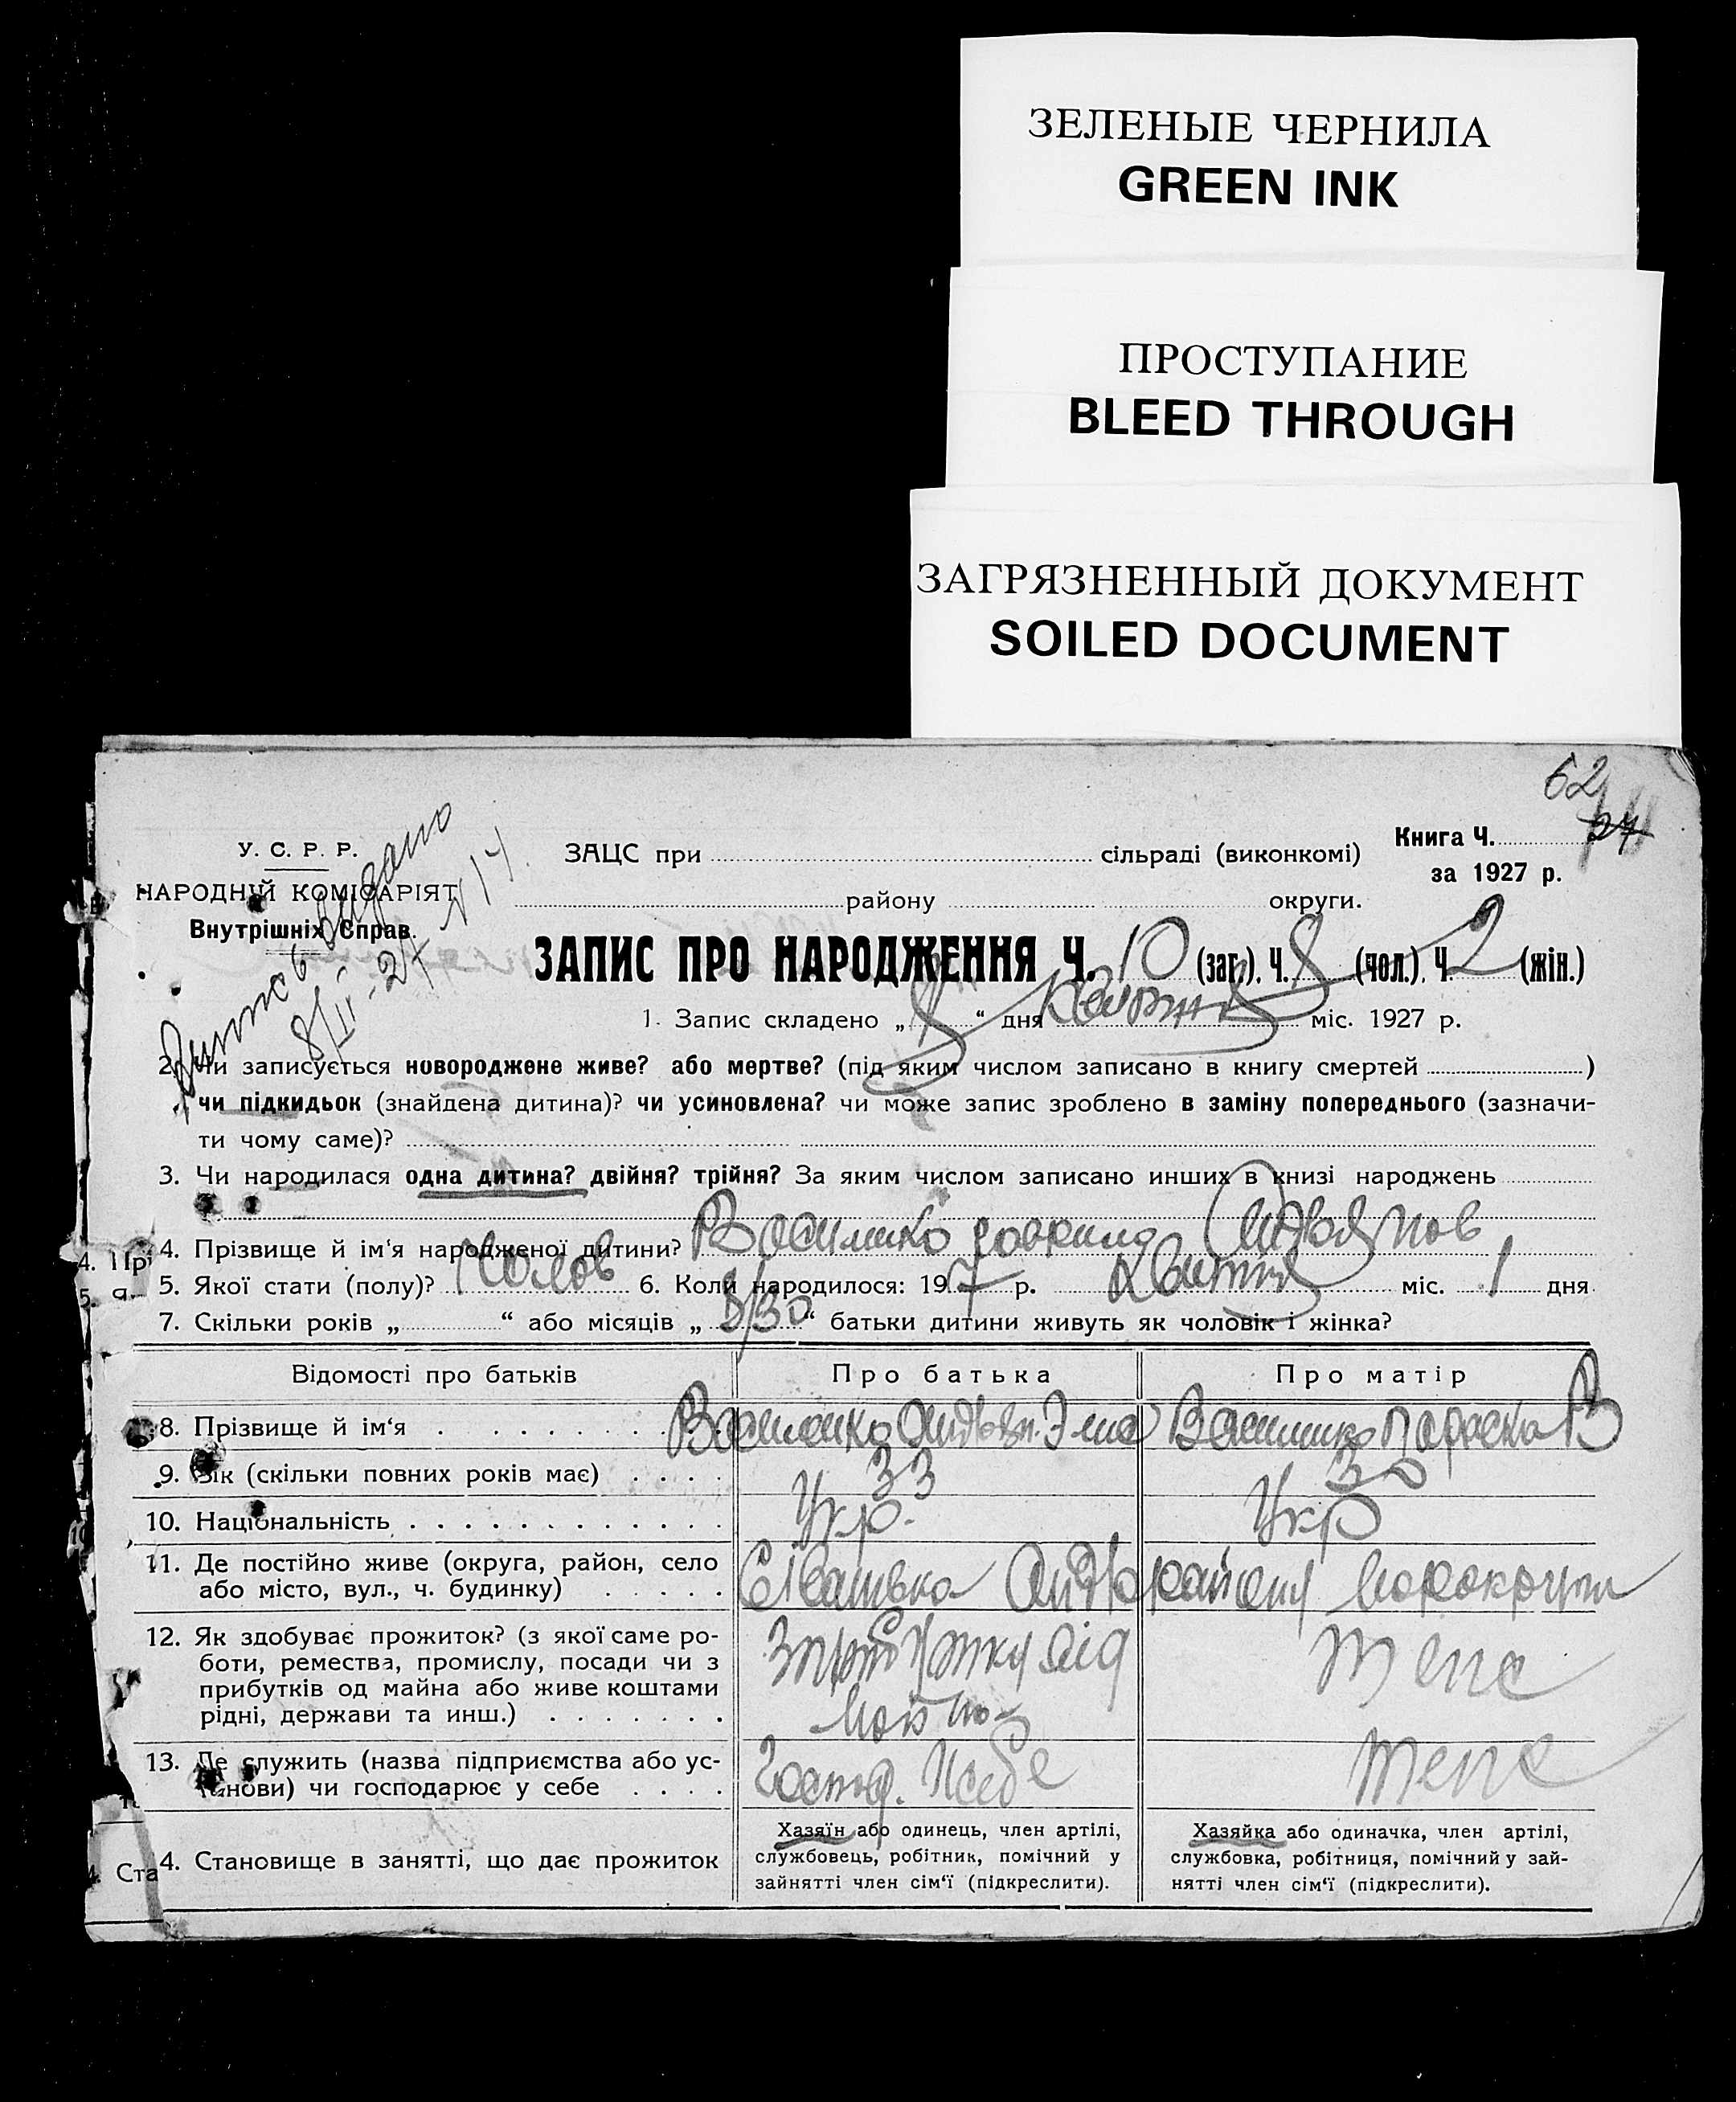 ЗЕЛЕНЫЕ ЧЕРНИЛА
GREEN INK
ПРОСТУПАНИЕ
BLEED THROUGH
ЗАГРЯЗНЕННЫЙ ДОКУМЕНТ
SOILED DOCUMENT
62
У. С. Р. Р.
НАРОДНІЙ КОМІСАРІЯТ
Внутрішніх Справ.
видано
ЗАЦС при сільраді (виконкомі)
району округи.
Книга Ч. 24
за 1927 р.
ЗАПИС ПРО НАРОДЖЕННЯ Ч. 10 (заг.), Ч. 8 (чол.), Ч. 2 (жін.)
1. Запис складено „ 8 “ дня Квітня міс. 1927 р.
2. Чи записується новороджене живе? або мертве? (під яким числом записано в книгу смертей )
чи підкидьок (знайдена дитина)? чи усиновлена? чи може запис зроблено в заміну попереднього (зазначи-
ти чому саме)?
3. Чи народилася одна дитина? двійня? трійня? За яким числом записано инших в книзі народжень
4. Прізвище й ім'я народженої дитини? Василико Гаврило
5. Якої стати (полу)? Чолов 6. Коли народилося: 1927 р. Квітня міс. 1 дня
7. Скільки років „ “ або місяців „ “ батьки дитини живуть як чоловік і жінка?
Відомості про батьків Про батька Про матір
8. Прізвище й ім'я Параска В
9. Вік (скільки повних років має) 33 30
10. Національність Укр. Укр
11. Де постійно живе (округа, район, село
або місто, вул., ч. будинку) району
12. Як здобуває прожиток? (з якої саме ро-
боти, ремества, промислу, посади чи з
прибутків од майна або живе коштами
рідні, держави та инш.)
13. Де служить (назва підприємства або ус-
танови) чи господарює у себе
4. Становище в занятті, що дає прожиток
Хазяїн або одинець, член артілі,
службовець, робітник, помічний у
зайнятті член сім'ї (підкреслити).
Хазяйка або одиначка, член артілі,
службовка, робітниця, помічний у зай-
нятті член сім'ї (підкреслити).